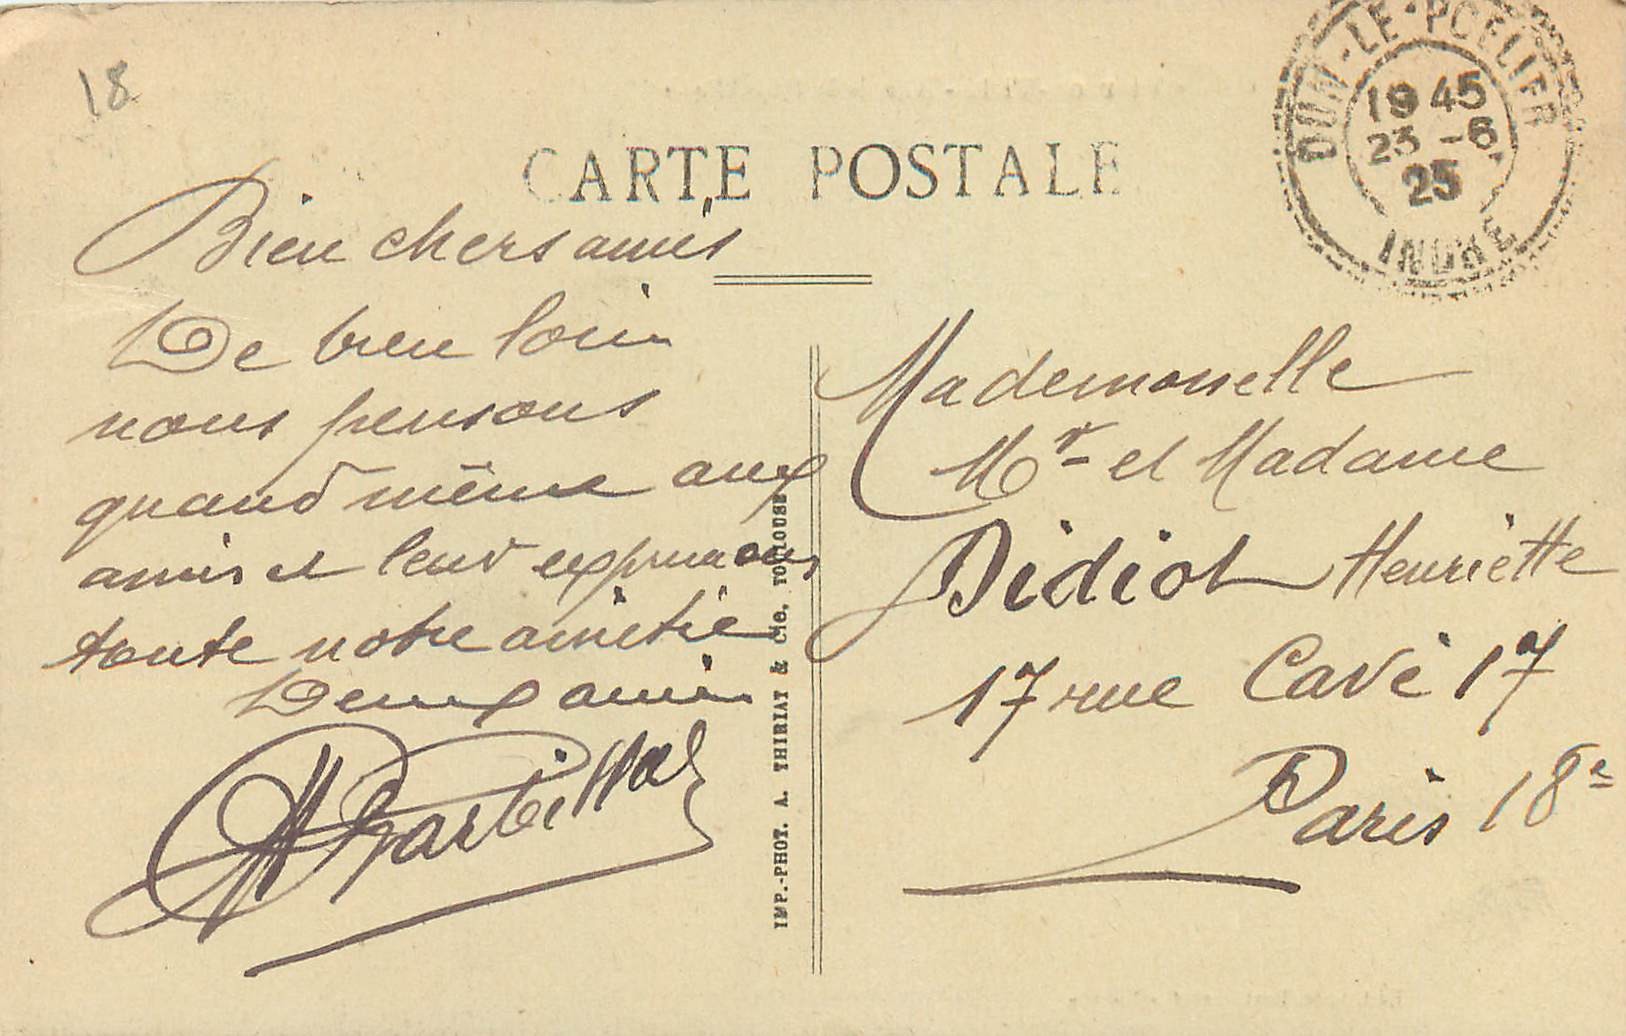 18
CARTE POSTALE
DUN-LE-POELIER
19 45
23 -6
25
INDRE
Bien chers amis
De bien loin
nous pensons
quand même aux
amis et leur exprimons
toute notre amitié
Deux amis
IMP.-PHOT. A. THIRIAT & Cie, TOULOUSE
Mademoiselle
Mr et Madame
Didiot Henriette
17 rue Cavé 17
Paris 18e